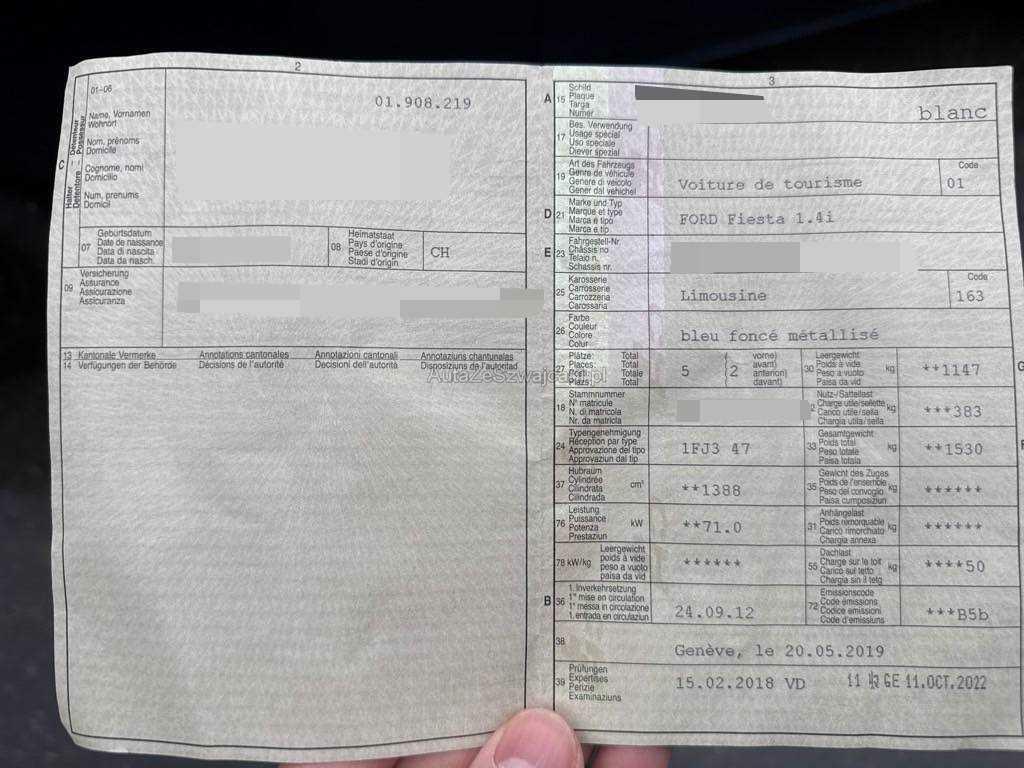 2
01-06
01.908.219
C
Halter Détenteur
Detentore Possessur
Name, Vornamen
Wohnort
Nom, prénoms
Domicile
Cognome, nomi
Domicilio
Num, prenums
Domicil
07
Geburtsdatum
Date de naissance
Data di nascita
Data da nasch.
08
Heimatstaat
Pays d'origine
Paese d'origine
Stadi d'origin
CH
09
Versicherung
Assurance
Assicurazione
Assicuranza
13 Kantonale Vermerke Annotations cantonales Annotazioni cantonali Annotaziuns chantunalas
14 Verfügungen der Behörde Décisions de l'autorité Decisioni dell'autorità Disposiziuns da l'autoritad
AutaZeSzwajcarii.pl
3
A 15
Schild
Plaque
Targa
Numer
blanc
17
Bes. Verwendung
Usage spécial
Uso speciale
Diever spezial
19
Art des Fahrzeugs
Genre de véhicule
Genere di veicolo
Gener dal vehichel
Voiture de tourisme
Code
01
D 21
Marke und Typ
Marque et type
Marca e tipo
Marca e tip
FORD Fiesta 1.4i
E 23
Fahrgestell-Nr.
Châssis no
Telaio n.
Schassis nr.
25
Karosserie
Carrosserie
Carrozzeria
Carossaria
Limousine
Code
163
26
Farbe
Couleur
Colore
Colur
bleu foncé métallisé
27
Plätze: Total
Places: Total
Posti: Totale
Plazs: Total
5
2
vorne)
avant)
anteriori)
davant)
30
Leergewicht
Poids à vide
Peso a vuoto
Paisa da vid
kg
**1147
G
18
Stammnummer
N° matricule
N. di matricola
Nr. da matricla
Nutz-/Sattellast
Charge utile/sellette
Carico utile/sella
Chargia utila/sella
kg
***383
24
Typengenehmigung
Réception par type
Approvazione del tipo
Approvaziun dal tip
1FJ3 47
33
Gesamtgewicht
Poids total
Peso totale
Paisa totala
kg
**1530
F
37
Hubraum
Cylindrée
Cilindrata
Cilindrada
cm³
**1388
35
Gewicht des Zuges
Poids de l'ensemble
Peso del convoglio
Paisa cumposiziun
kg
******
76
Leistung
Puissance
Potenza
Prestaziun
kW
**71.0
31
Anhängelast
Poids remorquable
Carico rimorchiato
Chargia annexa
kg
******
78 kW/kg
Leergewicht
poids à vide
peso a vuoto
paisa da vid
******
55
Dachlast
Charge sur le toit
Carico sul tetto
Chargia sin il tetg
kg
****50
B 36
1. Inverkehrsetzung
1re mise en circulation
1a messa in circolazione
1. entrada en circulaziun
24.09.12
72
Emissionscode
Code émissions
Codice emissioni
Code d'emissiuns
***B5b
38
Genève, le 20.05.2019
39
Prüfungen
Expertises
Perizie
Examinaziuns
15.02.2018 VD
GE 11.OCT.2022